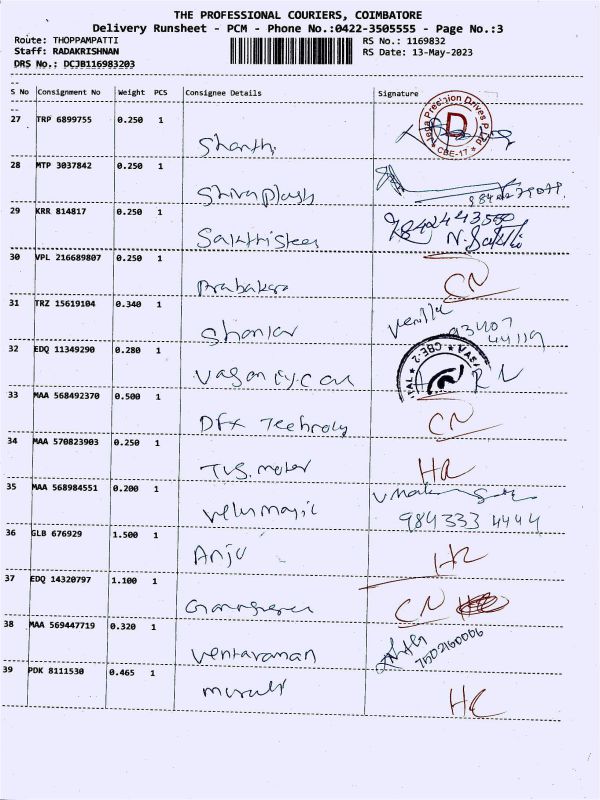 THE PROFESSIONAL COURIERS, COIMBATORE
Delivery Runsheet - PCM - Phone No.:0422-3505555 - Page No.:3
Route: THOPPAMPATTI
RS No.: 1169832
Staff: RADAKRISHNAN
RS Date: 13-May-2023
DRS No.: DCJB116983203
S No Consignment No Weight PCS Consignee Details Signature
27 TRP 6899755 0.250 1 Shanthi
Mega Precision Drives P
D
CBE-17
28 MTP 3037842 0.250 1
29 KRR 814817 0.250 1
9842443550
N. Sakthi
30 VPL 216689807 0.250 1 Prabakara CN
31 TRZ 15619104 0.340 1 Shankar
93407
44119
32 EDQ 11349290 0.280 1
CBE-2
33 MAA 568492370 0.500 1 DFX Technoly CN
34 MAA 570823903 0.250 1 TVS. motor
35 MAA 568984551 0.200 1 velumayil
984333 4444
36 GLB 676929 1.500 1 Anju
37 EDQ 14320797 1.100 1 CN
38 MAA 569447719 0.320 1 Ventaraman
39 PDK 8111530 0.465 1 murali